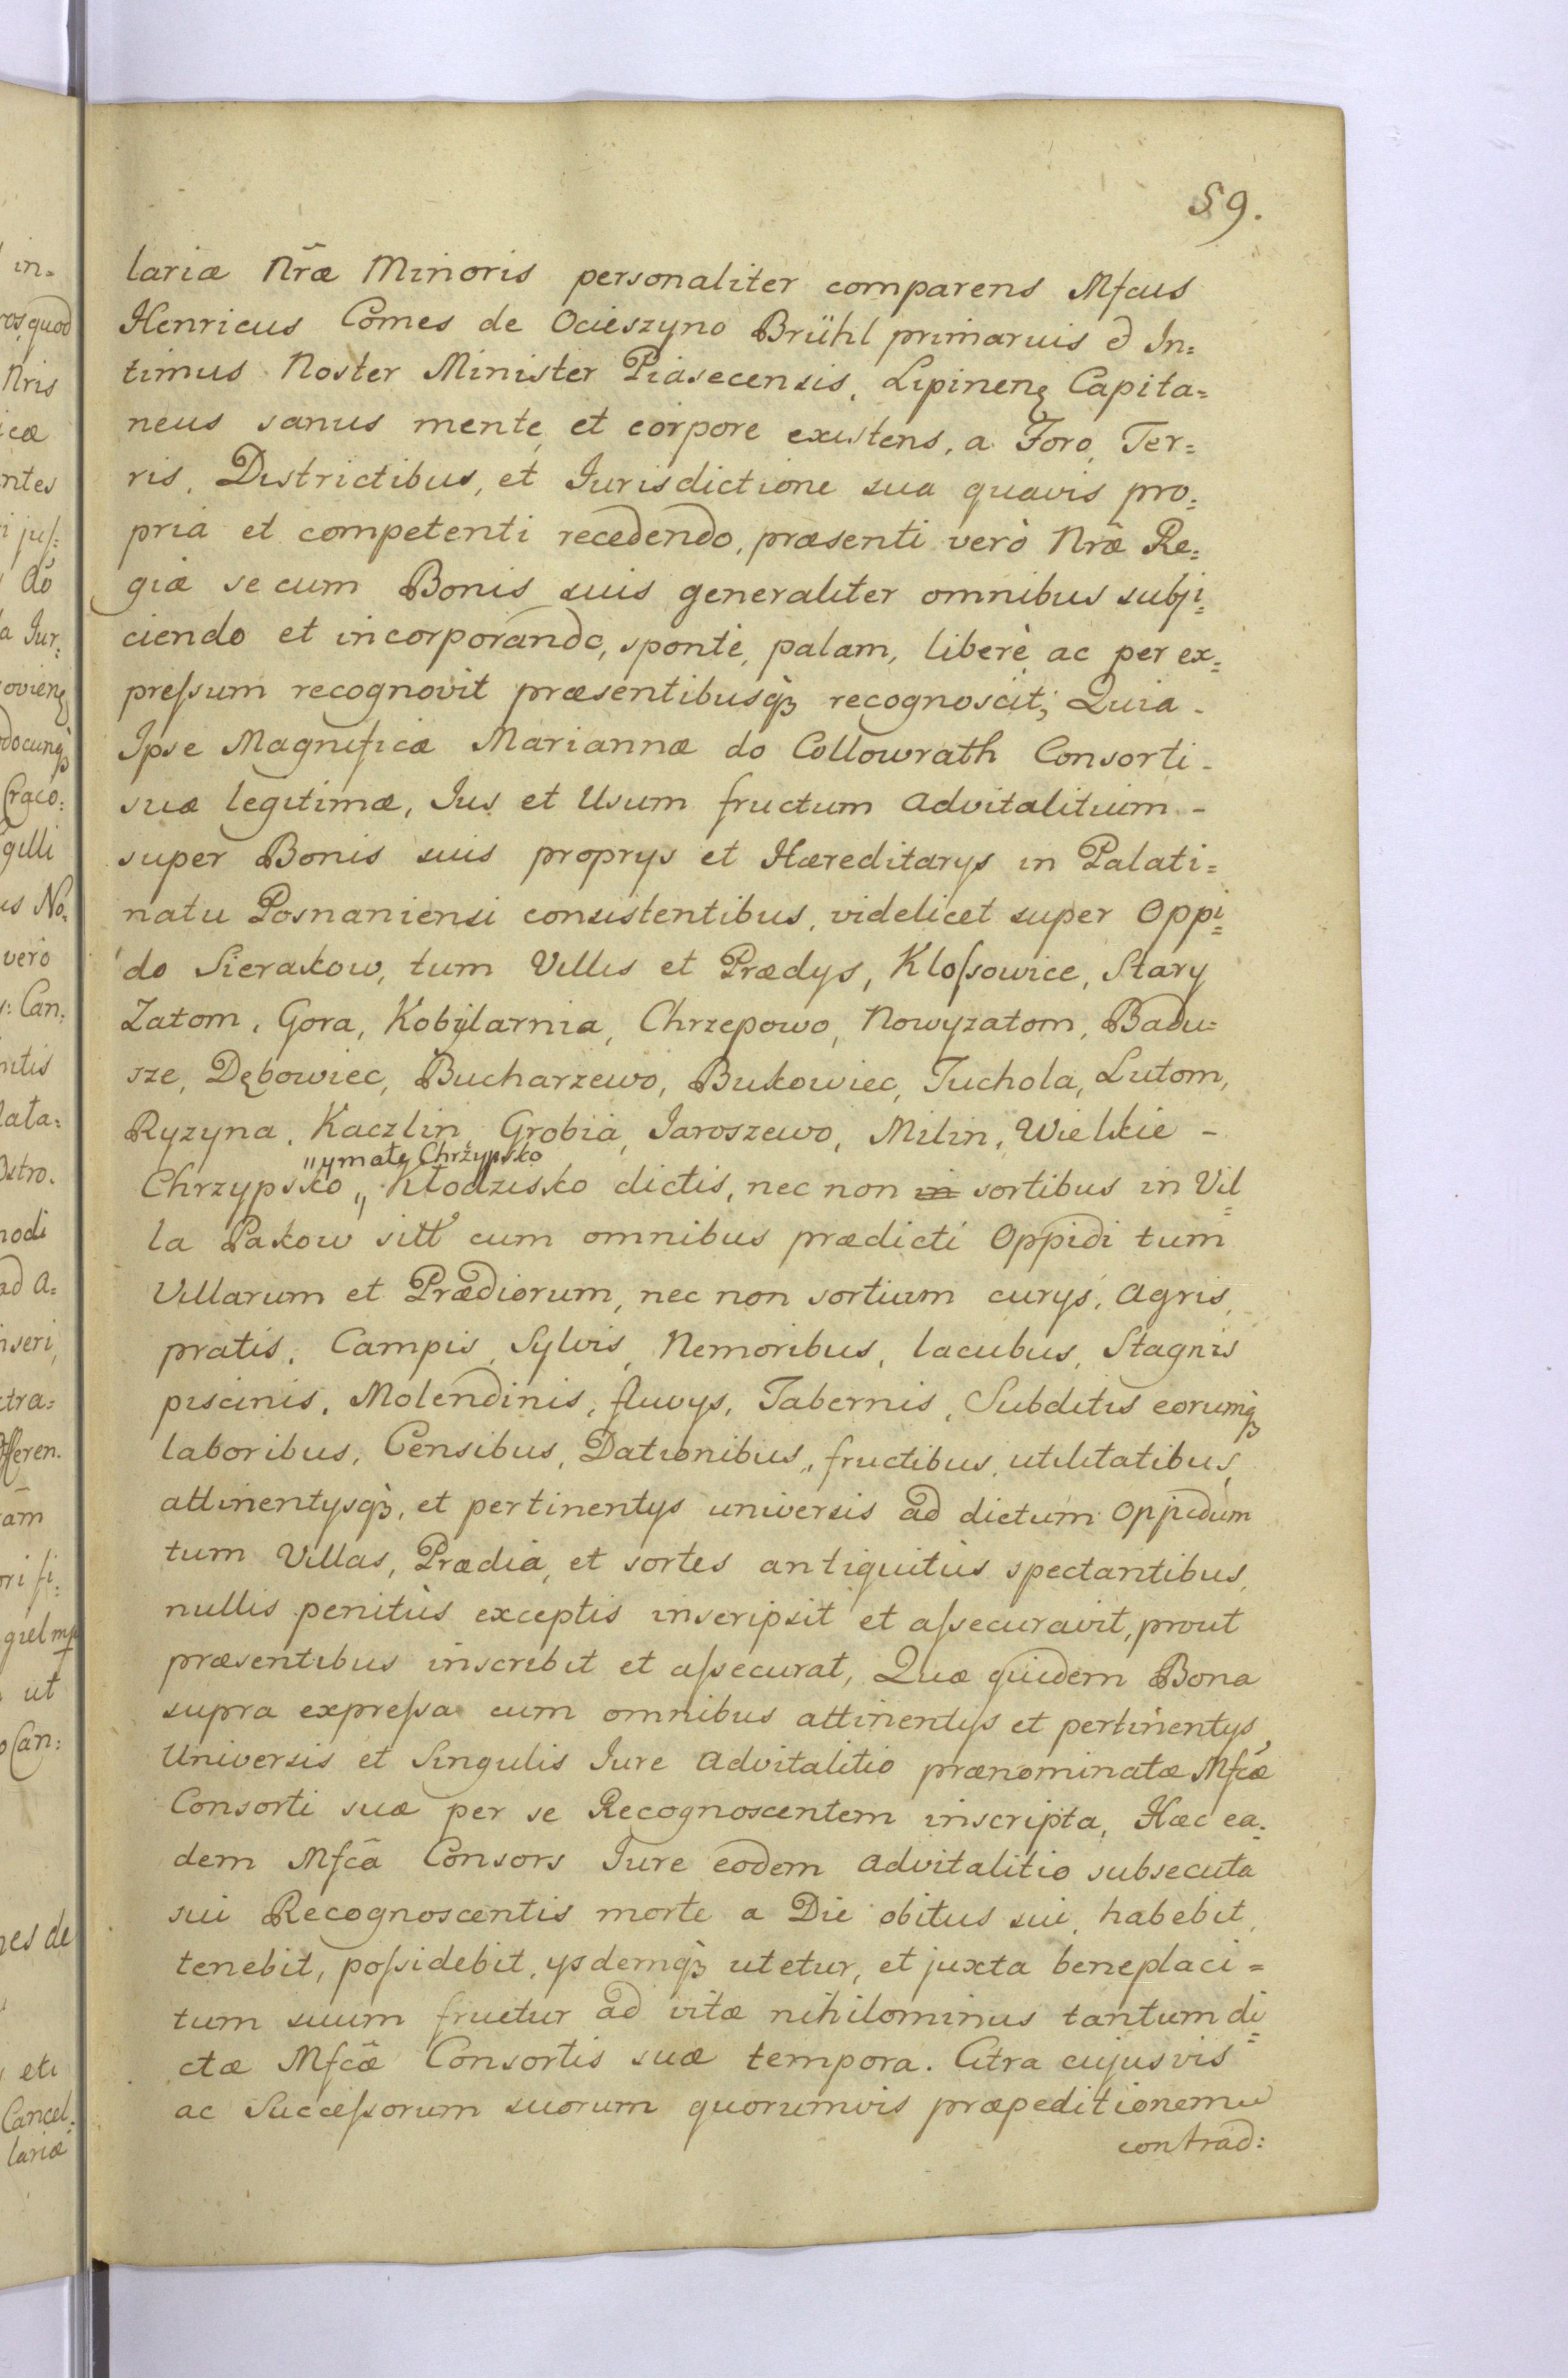 59.
lariæ Nrãe Minoris personaliter comparens Mfcus
Henricus Comes de Ocieszyno Brühl primarius & In=
timus Noster Minister Piasecensis, Lipinenę Capita=
neus sanus mente et corpore existens, a Foro, Ter=
ris, Districtibus, et Iurisdictione sua quavis pro=
pria et competenti recedendo, præsenti verò Nrãe Re=
giæ se cum Bonis suis generaliter omnibus subji=
ciendo et incorporando, spontè, palam, liberè ac per ex=
preſsum recognovit præsentibusqȝ recognoscit; Quia -
Ipse Magnificæ Mariannæ do Collowrath Consorti -
suæ legitimæ, Ius et Usum fructum advitalitium -
super Bonis suis proprys et Hæreditarys in Palati=
natu Posnaniensi consistentibus, videlicet super Oppi=
do Sierakow, tum Villis et Prædys, Kloſsowice, Stary
Zatom, Gora, Kobylarnia, Chrzepowo, Nowyzatom, Badu=
sze, Dębowiec, Bucharzewo, Bukowiec, Tuchola, Lutom,
Ryzyna, Kaczlin, Grobia, Iaroszewo, Milin, Wielkie -
"ymałe Chrżypsko
Chrzypsko " Kłodzisko dictis, nec non in sortibus in Vil=
la Pakow sitt cum omnibus prædicti Oppidi tum
Villarum et Prædiorum, nec non sortium curys, agris,
pratis, Campis, Sylvis, Nemoribus, lacubus, Stagnis
piscinis, Molendinis, fluvys, Tabernis, Subditis eorumqȝ
laboribus, Censibus, Dationibus,, fructibus, utilitatibus,
attinentysqȝ, et pertinentys universis ad dictum Oppidum
tum Villas, Prædia, et sortes antiquitùs spectantibus,
nullis penitùs exceptis inscripsit et aſsecuravit, prout
præsentibus inscribit et aſsecurat, Quæ quidem Bona
supra expreſsa cum omnibus attinentys et pertinentys,
Universis et Singulis Iure advitalitio prænominatæ Mfcæ
Consorti suæ per se Recognoscentem inscripta, Hæc ea=
dem Mfcã Consors Iure eodem advitalitio subsecuta
sui Recognoscentis morte a Die obitus sui, habebit,
tenebit, poſsidebit, ysdemqȝ utetur, et juxta beneplaci=
tum suum fruetur ad vitæ nihilominus tantum di=
ctæ Mfcæ Consortis suæ tempora. Citra cujusvis
ac Succeſsorum suorum quorumvis præpeditionem
contrad:
in=
quod
Nris
icæ
ntes
Craco:
vero
ad a=
ut
nes de
eti
Cancel=
lariæ